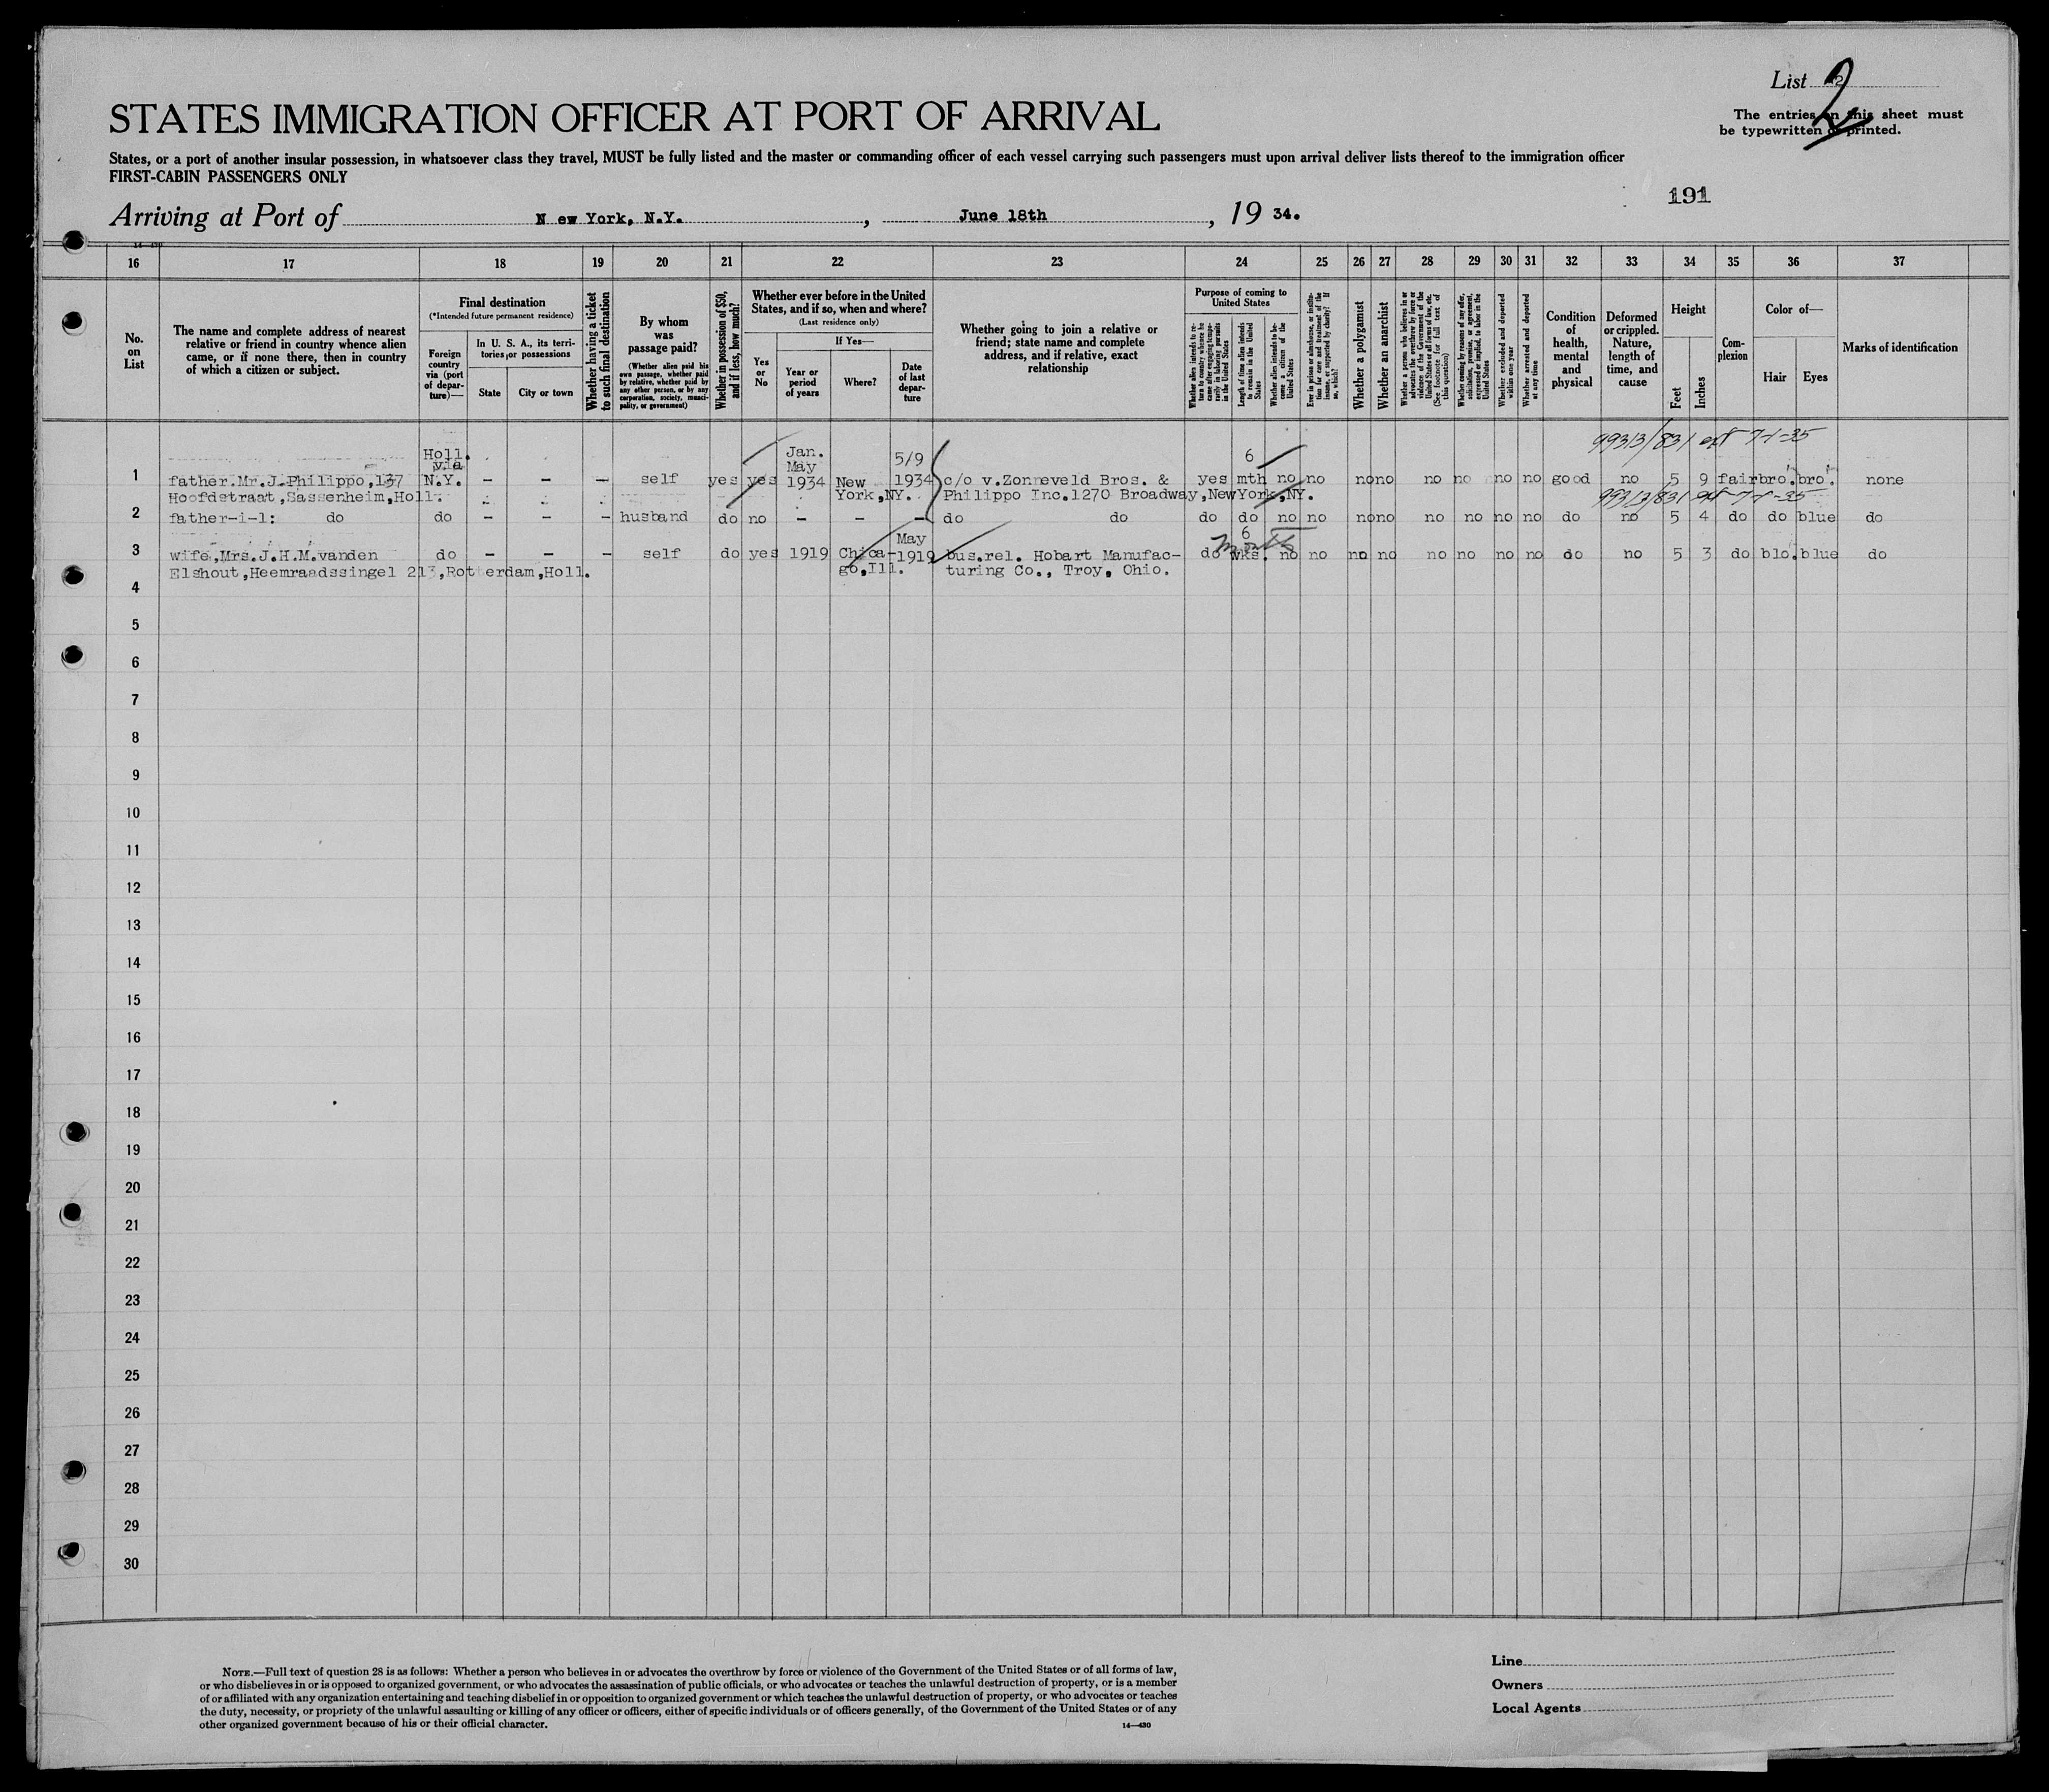 List 2
2
STATES IMMIGRATION OFFICER AT PORT OF ARRIVAL
The entries on this sheet must
be typewritten or printed.
States, or a port of another insular possession, in whatsoever class they travel, MUST be fully listed and the master or commanding officer of each vessel carrying such passengers must upon arrival deliver lists thereof to the immigration officer
FIRST-CABIN PASSENGERS ONLY
191
Arriving at Port of N ew York, N.Y. , June 18th , 19 34.
16 17 18 19 20 21 22 23 24 25 26 27 28 29 30 31 32 33 34 35 36 37
No. on List
The name and complete address of nearest relative or friend in country whence alien came, or if none there, then in country of which a citizen or subject.
Final destination
(*Intended future permanent residence)
Foreign country via (port of departure)—
In U. S. A., its territories, or possessions
State
City or town
Whether having a ticket to such final destination
By whom was passage paid?
(Whether alien paid his own passage, whether paid by relative, whether paid by any other person, or by any corporation, society, municipality, or government)
Whether in possession of $50, and if less, how much?
Whether ever before in the United States, and if so, when and where?
(Last residence only)
Yes or No
If Yes—
Year or period of years
Where?
Date of last departure
Whether going to join a relative or friend; state name and complete address, and if relative, exact relationship
Purpose of coming to United States
Whether alien intends to return to country whence he came after engaging temporarily in laboring pursuits in the United States
Length of time alien intends to remain in the United States
Whether alien intends to become a citizen of the United States
Ever in prison or almshouse, or institution for care and treatment of the insane, or supported by charity? If so, which?
Whether a polygamist
Whether an anarchist
Whether a person who believes in or advocates the overthrow by force or violence of the Government of the United States or all forms of law, etc. (See footnote for full text of this question)
Whether coming by reason of any offer, solicitation, promise, or agreement, expressed or implied, to labor in the United States
Whether excluded and deported within one year
Whether arrested and deported at any time
Condition of health, mental and physical
Deformed or crippled. Nature, length of time, and cause
Height
Feet
Inches
Complexion
Color of—
Hair
Eyes
Marks of identification
99313/831 7-1-35
Holl. Jan. 5/9 6
via May
1 father.Mr.J.Philippo,137 N.Y. - - - self yes yes 1934 New 1934 c/o v.Zonneveld Bros. & yes mth no no no no no no no no good no 5 9 fair bro. bro. none
Hoofdstraat,Sassenheim,Holl. York,NY. Philippo Inc.1270 Broadway,NewYork,NY.
99312/831 7-1-35
2 father-i-l: do do - - - husband do no - - - do do do do no no no no no no no no do no 5 4 do do blue do
May 6 months
3 wife,Mrs.J.H.M.vanden do - - - self do yes 1919 Chica- 1919 bus.rel. Hobart Manufac- do wks. no no no no no no no no do no 5 3 do blo. blue do
Elshout,Heemraadssingel 213,Rotterdam,Holl. go,Ill. turing Co., Troy, Ohio.
4
5
6
7
8
9
10
11
12
13
14
15
16
17
18
19
20
21
22
23
24
25
26
27
28
29
30
NOTE.—Full text of question 28 is as follows: Whether a person who believes in or advocates the overthrow by force or violence of the Government of the United States or of all forms of law,
or who disbelieves in or is opposed to organized government, or who advocates the assassination of public officials, or who advocates or teaches the unlawful destruction of property, or is a member
of or affiliated with any organization entertaining and teaching disbelief in or opposition to organized government or which teaches the unlawful destruction of property, or who advocates or teaches
the duty, necessity, or propriety of the unlawful assaulting or killing of any officer or officers, either of specific individuals or of officers generally, of the Government of the United States or of any
other organized government because of his or their official character.
14—430
Line
Owners
Local Agents